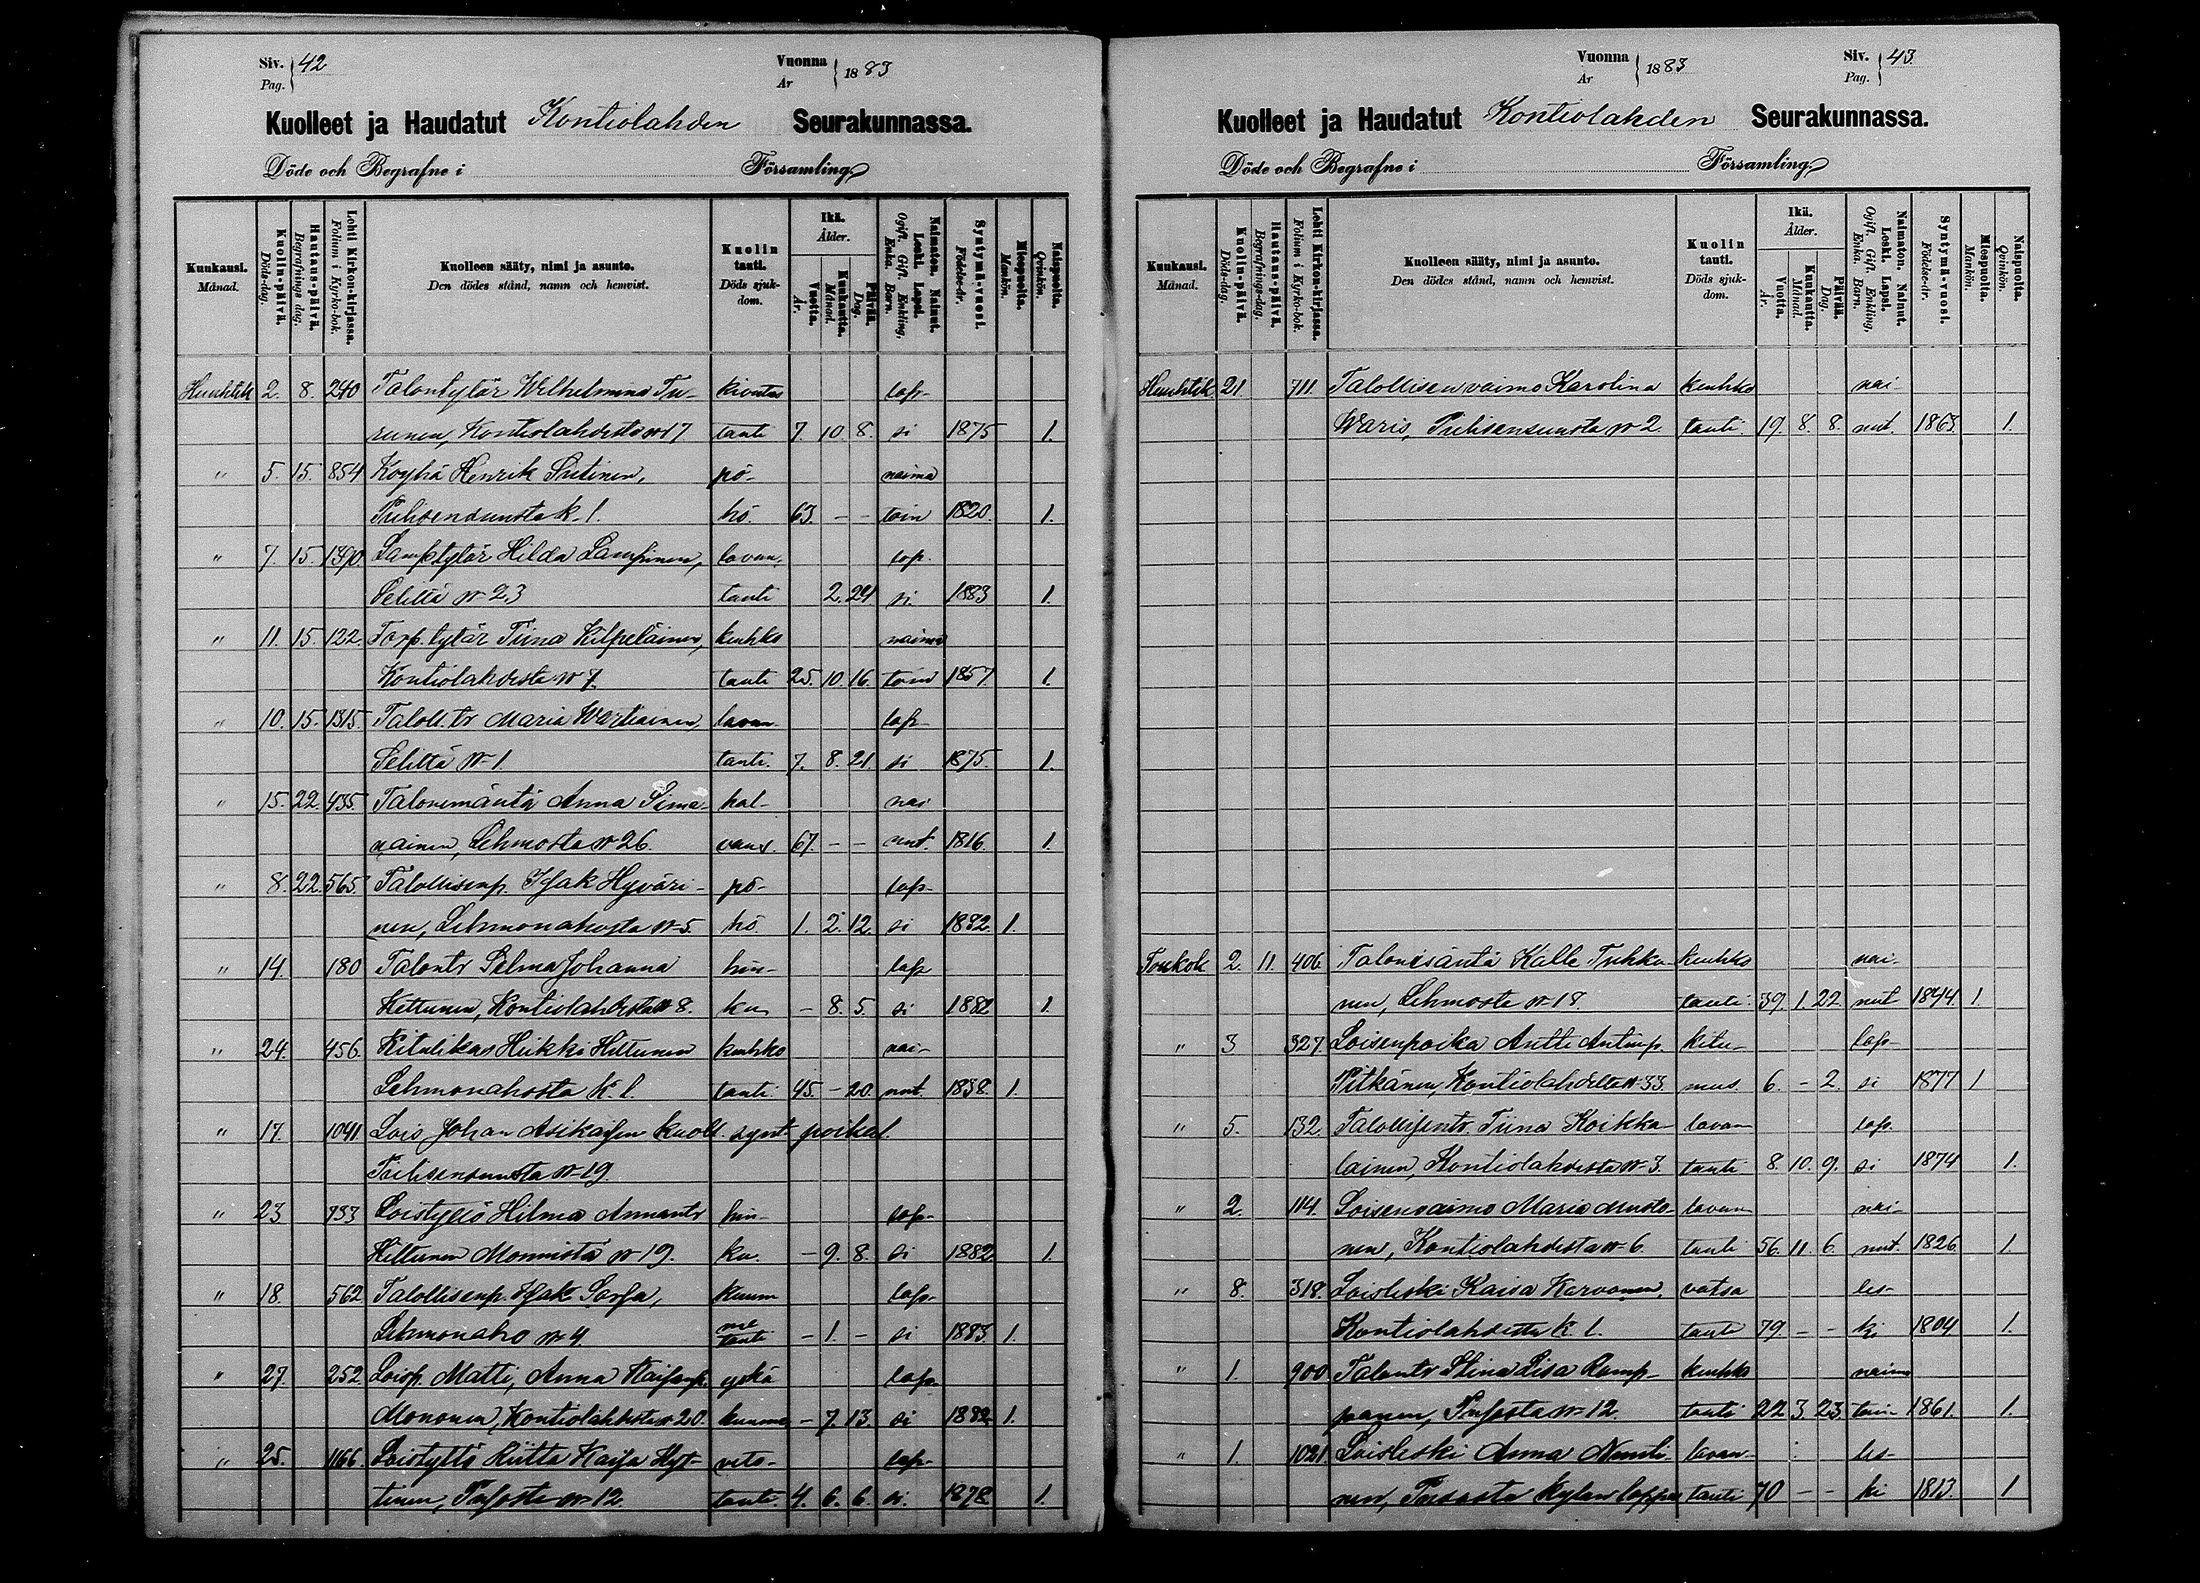 Siv. Pag. 42 Vuonna År 1883
Kuolleet ja Haudatut Kontiolahden Seurakunnassa.
Döde och Begrafne i Församling
Kuukausi. Månad. Kuolin-päivä. Döds-dag. Hautaus-päivä. Begrafnings dag. Lehti Kirkon-kirjassa. Folium i Kyrko-bok. Kuolleen sääty, nimi ja asunto. Den dödes stånd, namn och hemvist. Kuolin tauti. Döds sjuk-dom. Ikä. Ålder. Vuotta. År. Kuukautta. Månad. Päivää. Dag. Naimaton. Nainut. Leski. Lapsi. Ogift. Gift. Enkling, Enka. Barn. Syntymä-vuosi. Födelse-år. Miespuolta. Mankön. Naispuolta. Qvinkön.
Huhtik 2. 8. 240 Talontytär Wilhelmina Tu- kivutus lap-
runen, Kontiolahdesta № 17 tauti 7. 10 8. si 1875 1.
" 5. 15. 854 Köyhä Henrik Sutinen, pö- naima
Puhsensuusta k. 1. hö. 63. - - toin 1820. 1.
" 7. 15. 1390. Lamptytär Hilda Lampinen, lavan- lap.
Seliltä № 23 tauti 2. 24 si. 1883 1.
" 11. 15. 122. Torp. tytär Tiina Kilpeläinen, keuhko naima
Kontiolahdesta № 7. tauti 25. 10. 16. toin 1857. 1.
" 10. 15. 1315. Taloll. tr Maria Wartiainen, lavan- lap-
Seliltä № 1. tauti. 7. 8. 21. si 1875. 1.
" 15. 22. 435. Talonemäntä Anna Sima- hal- nai
nainen, Lehmosta № 26. vaus. 67. - - nut. 1816. 1.
" 8. 22. 565. Talollisenp. Isak Hyväri- pö- lap-
nen, Lehmonahosta № 5. hö. 1. 2. 12. si 1882. 1.
" 14. 180 Talontr Selma Johanna hin- lap
Kettunen, Kontiolahdesta № 8. ku - 8. 5. si 1882 1.
" 24. 456. Ititulikas Heikki Hiltunen keuhko nai-
Lehmonahosta K. 1. tauti. 45. - 20. nut. 1838. 1.
" 17. 1041. Lois Johan Asikaisen kuoll. synt. poikal.
Puhsensuusta № 19.
" 23 733 Loistyttö Hilma Annantr hin- lap-
Hiltunen Monnista № 19. ku. - 9. 8. si 1882 1.
" 18. 562 Talollisenp. Isak Sorsa, kuum lap-
Lehmonaho № 4. me tauti - 1. - si 1883 1.
" 27. 252. Loisp. Matti, Anna Kaisanp. yskä lap-
Mononen, Kontiolahdesta № 20. kuume - 7. 13. si 1882 1.
" 25. 1166. Loistyttö Riitta Kaisa Hyt- veto- lap-
tinen, Pusosta № 12. tauti. 4. 6. 6. si. 1878. 1.
Vuonna År 1883 Siv. Pag. 43.
Kuolleet ja Haudatut Kontiolahden Seurakunnassa.
Döde och Begrafne i Församling
Kuukausi. Månad. Kuolin-päivä. Döds-dag. Hautaus-päivä. Begrafnings-dag. Lehti Kirkon-kirjassa. Folium i Kyrko-bok. Kuolleen sääty, nimi ja asunto. Den dödes stånd, namn och hemvist. Kuolin tauti. Döds sjuk-dom. Ikä. Ålder. Vuotta. År. Kuukautta. Månad. Päivää. Dag. Naimaton. Nainut. Leski. Lapsi. Ogift. Gift. Enkling, Enka. Barn. Syntymä-vuosi. Födelse-år. Miespuolta. Mankön. Naispuolta. Qvinkön.
Huhtik 21 711. Talollisen vaimo Karolina keuhko nai-
Waris, Puhsensuusta № 2. tauti. 19. 8. 8. nut. 1863. 1.
Toukok 2. 11. 406 Talonisäntä Kalle Tuhka- keuhko nai-
nen, Lehmosta № 18. tauti 39. 1. 22. nut 1844. 1
" 3 327. Loisenpoika Antti Antinp. kitu- lap-
Pitkänen, Kontiolahdelta № 33. mus. 6. - 2. si 1877 1
" 5. 132. Talollisentr. Tiina Koikka- lavan- lap.
lainen, Kontiolahdesta № 3. tauti 8. 10. 9. si 1874 1.
" 2. 114. Loisenvaimo Maria Musto- lavan- nai-
nen, Kontiolahdesta № 6. tauti 56. 11. 6. nut. 1826. 1.
" 8. 318. Loisleski Kaisa Karvonen, vatsa les-
Kontiolahdesta k. 1. tauti 79. - - ki 1804 1.
" 1. 900 Talontr Stina Lisa Romp- keuhko naima
panen, Pusosta № 12. tauti 22 3. 23. toin 1861. 1.
" 1. 1021 Loisleski Anna Nuuti- lavan- les-
nen, Pusosta kylän loppu tauti 70 - - ki 1813. 1